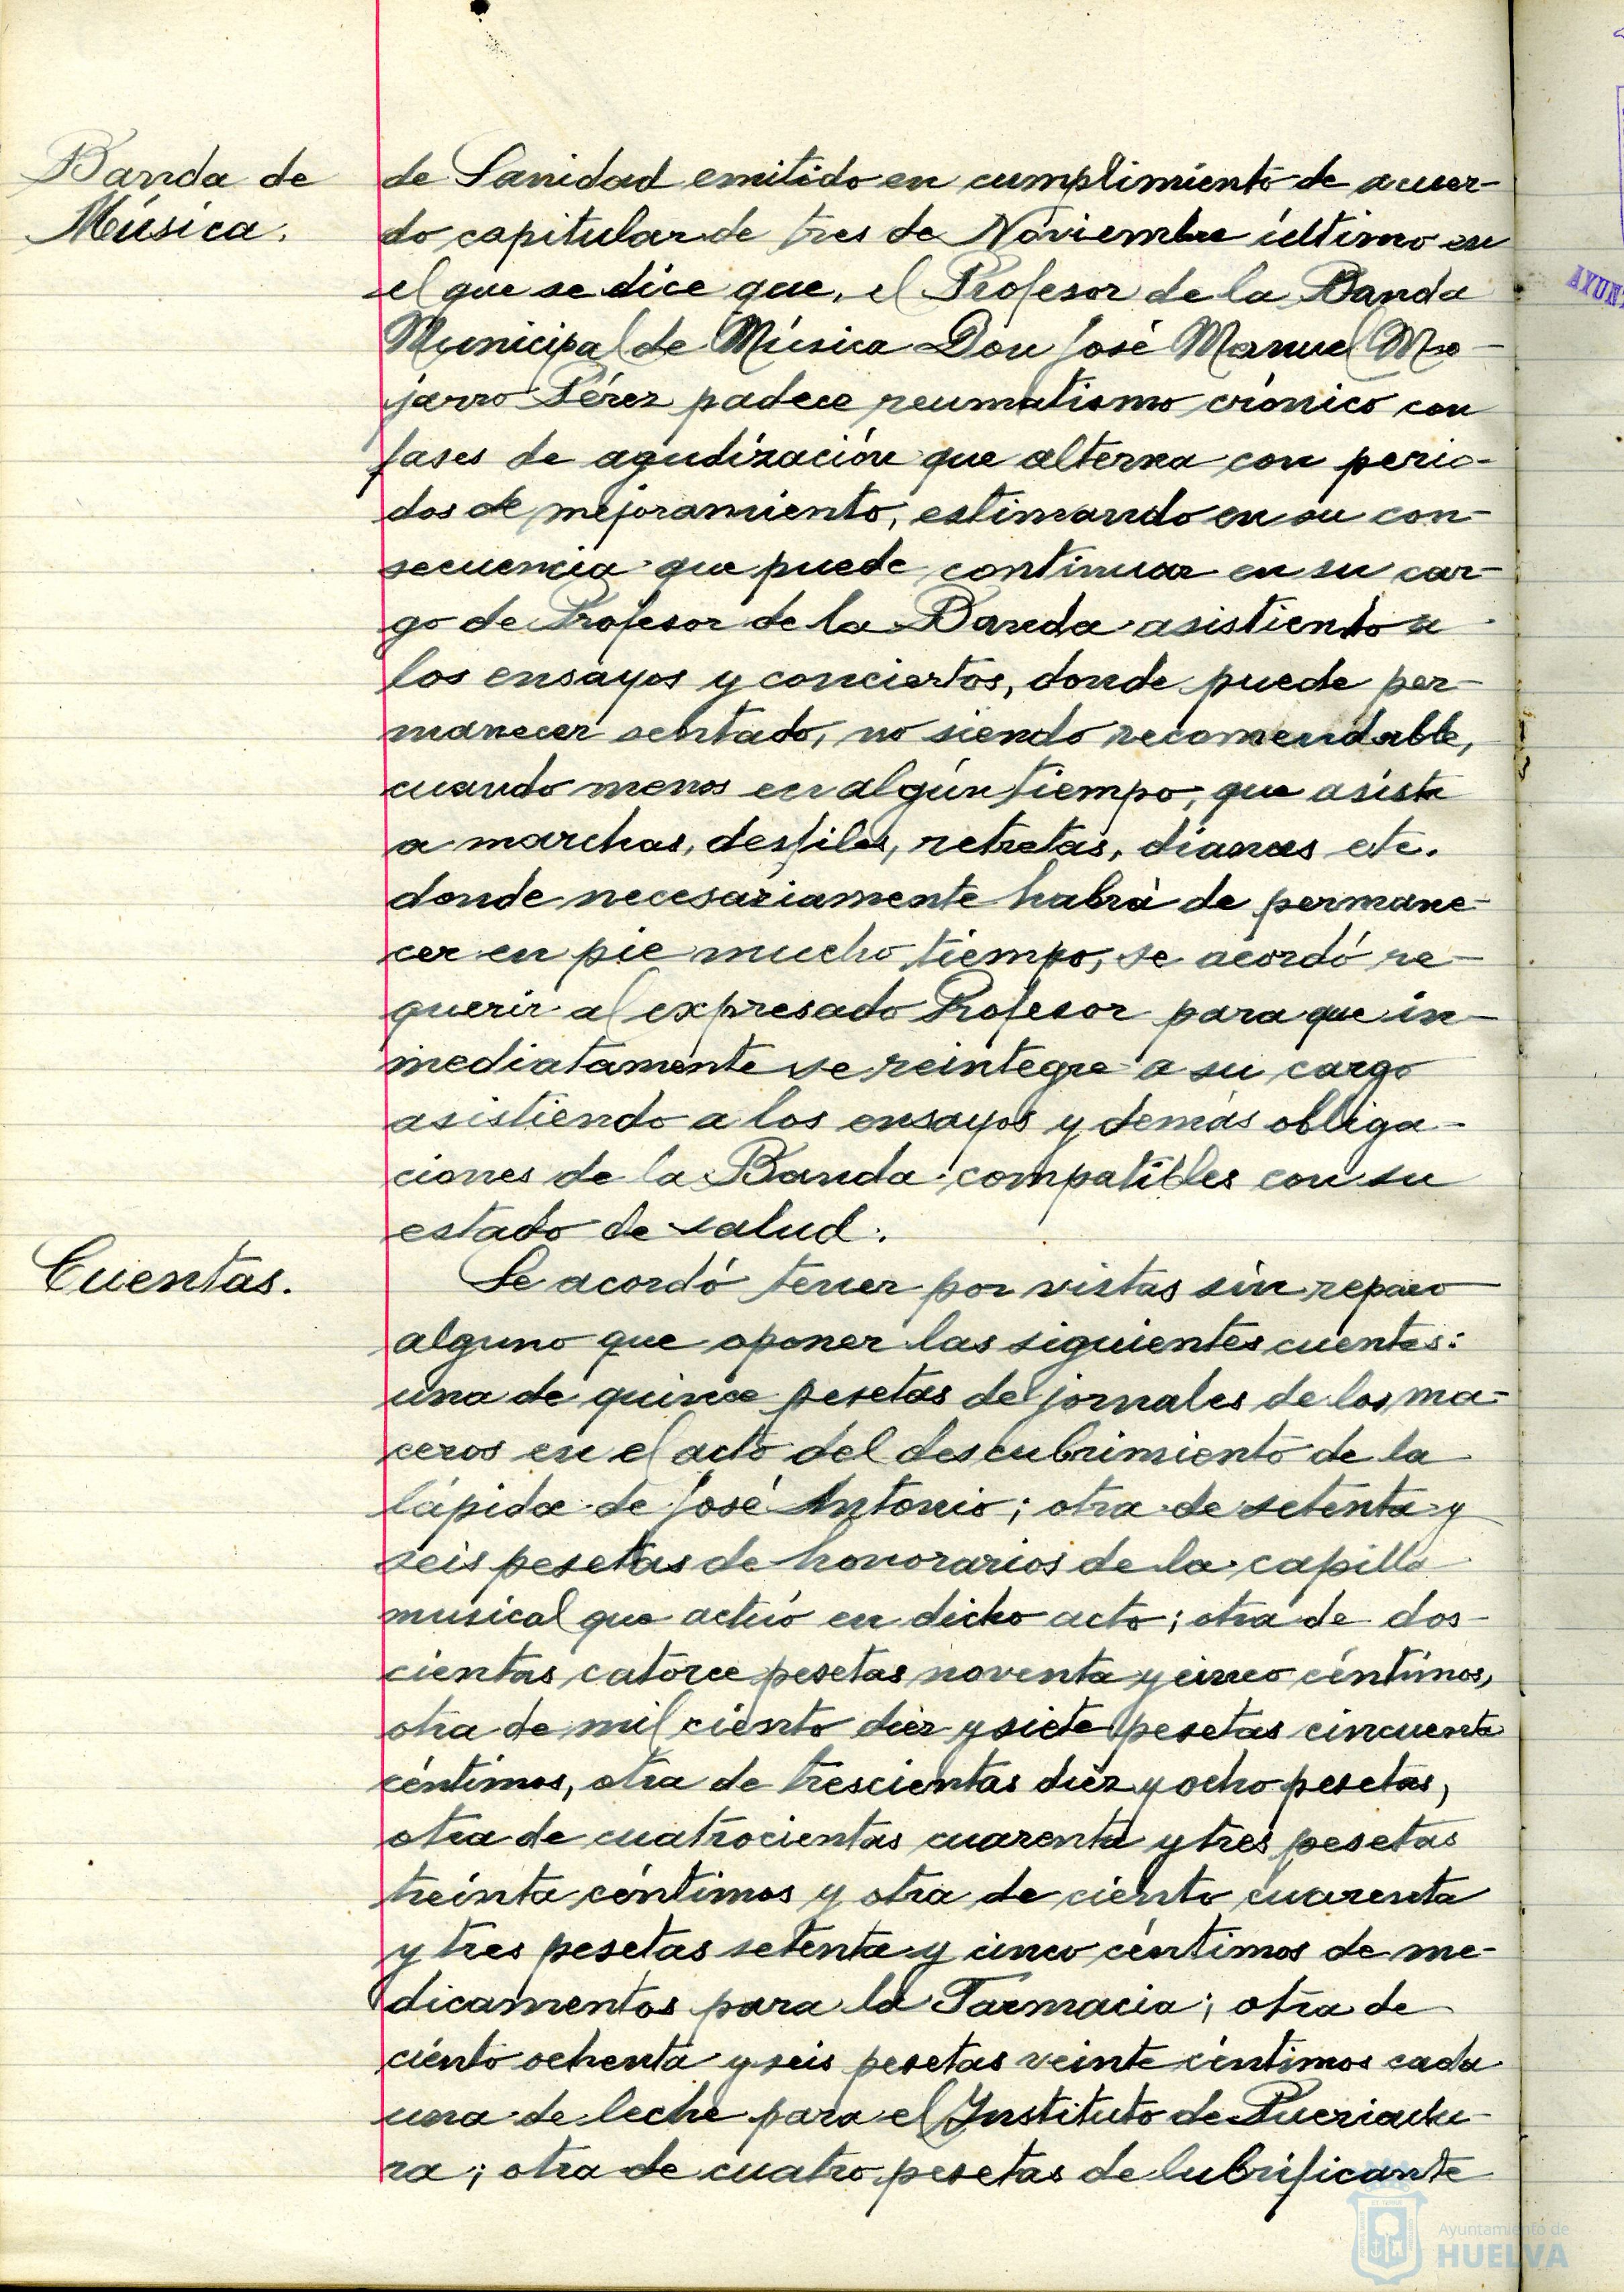 Banda de
Música.
de Sanidad emitido en cumplimiento de acuer-
do capitular de tres de Noviembre último en
el que se dice que, el Profesor de la Banda
Municipal de Música Don José Manuel Mo-
jarro Pérez padece reumatismo crónico con
fases de agudización que alterna con perio-
dos de mejoramiento, estimando en su con-
secuencia que puede continuar en su car-
go de Profesor de la Banda asistiendo a
los ensayos y conciertos, donde puede per-
manecer sentado, no siendo recomendable,
cuando menos en algún tiempo, que asista
a marchas, desfiles, retretas, dianas etc.
donde necesariamente habrá de permane-
cer en pie mucho tiempo, se acordó re-
querir al expresado Profesor para que in-
mediatamente se reintegre a su cargo
asistiendo a los ensayos y demás obliga-
ciones de la Banda compatibles con su
estado de salud.
Cuentas.
Se acordó tener por vistas sin reparo
alguno que oponer las siguientes cuentas:
una de quince pesetas de jornales de los ma-
ceros en el acto del descubrimiento de la
lápida de José Antonio; otra de setenta y
seis pesetas de honorarios de la capilla
musical que actuó en dicho acto; otra de dos-
cientas catorce pesetas noventa y cinco céntimos,
otra de mil ciento diez y siete pesetas cincuenta
céntimos, otra de trescientas diez y ocho pesetas,
otra de cuatrocientas cuarenta y tres pesetas
treinta céntimos y otra de ciento cuarenta
y tres pesetas setenta y cinco céntimos de me-
dicamentos para la Farmacia; otra de
ciento ochenta y seis pesetas veinte céntimos cada
una de leche para el Instituto de Puericultu-
ra; otra de cuatro pesetas de lubrificante
AYUN
Ayuntamiento de
HUELVA